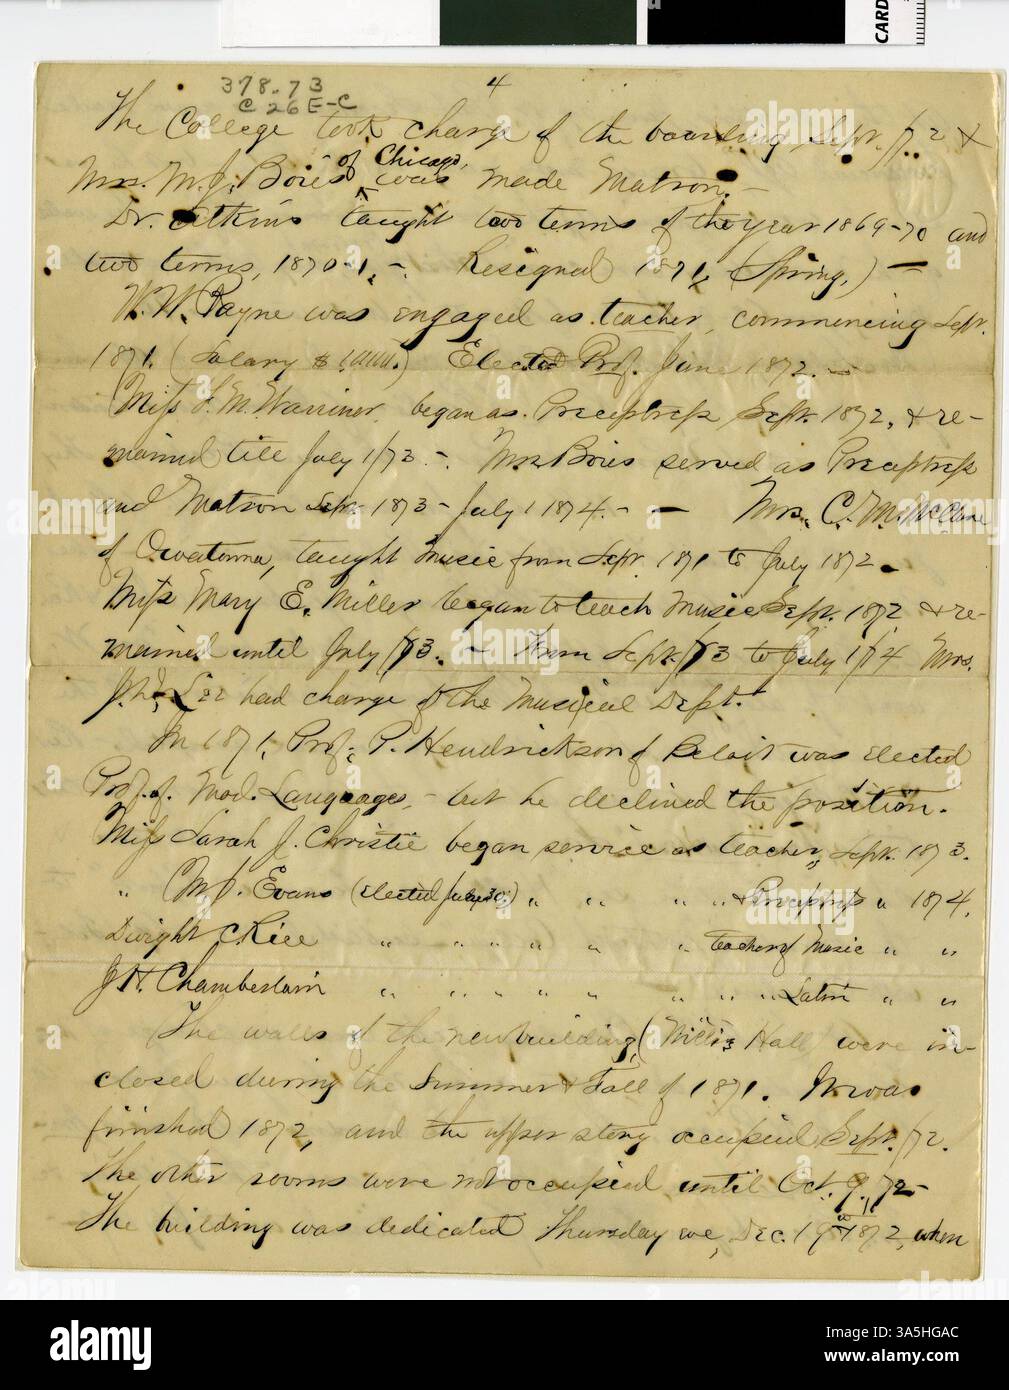 CARD
378.73
C26E-C
4
The College took charge of the boarding Sept. /72 &
of Chicago,
Mrs. M. J. Boies was made Matron. -
Dr. Atkins taught two terms of the year 1869-70 and
two terms, 1870-1. - Resigned 1871, (Spring.) -
W. W. Payne was engaged as teacher, commencing Sept.
1871. (Salary $ 1,000.) Elected Prof. June 1872. -
Miss L. M. Warriner, began as Preceptress Sept. 1872, & re-
mained till July 1/73. -. Mrs Boies served as Preceptress
and Matron Sept. 1873 - July 1 1874. - - Mrs. C. M.
of Owatonna, taught Music from Sept. 1871 to July 1872.
Miss Mary E. Miller began to teach Music Sept. 1872 & re-
mained until July /73. - From Sept. /73 to July 1/74 Mrs.
Lee had charge of the Musical Dept.
In 1871, Prof. P. Hendrickson of Beloit was elected
Prof. of. Mod. Languages, - but he declined the position.
Miss Sarah J. Christie began service as teacher, Sept. 1873.
" Evans (elected July 30,) " " " " & Preceptress " 1874.
Dwight C Rice " " " " " " teacher of Music " "
J H. Chamberlain " " " " " " " " Latin " "
The walls of the new building, (Willis Hall) were in-
closed during the Summer & Fall of 1871. It was
finished 1872, and the upper story occupied Sept. /72.
The other rooms were not occupied until Oct. 9, 72-
The building was dedicated Thursday eve, Dec. 19th 1872, when
alamy
Image ID: A35HGAC
www.alamy.com